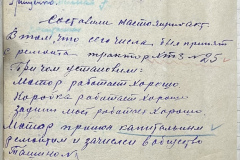 Составили настоящий акт
В том, что сего числа был принят
с ремонта трактор ХТЗ №25
Причем установили:
Мотор работает хорошо
Коробка работает хорошо
Задний мост работает хорошо
Мотор прошел капитальный
ремонт и зачислен в общество